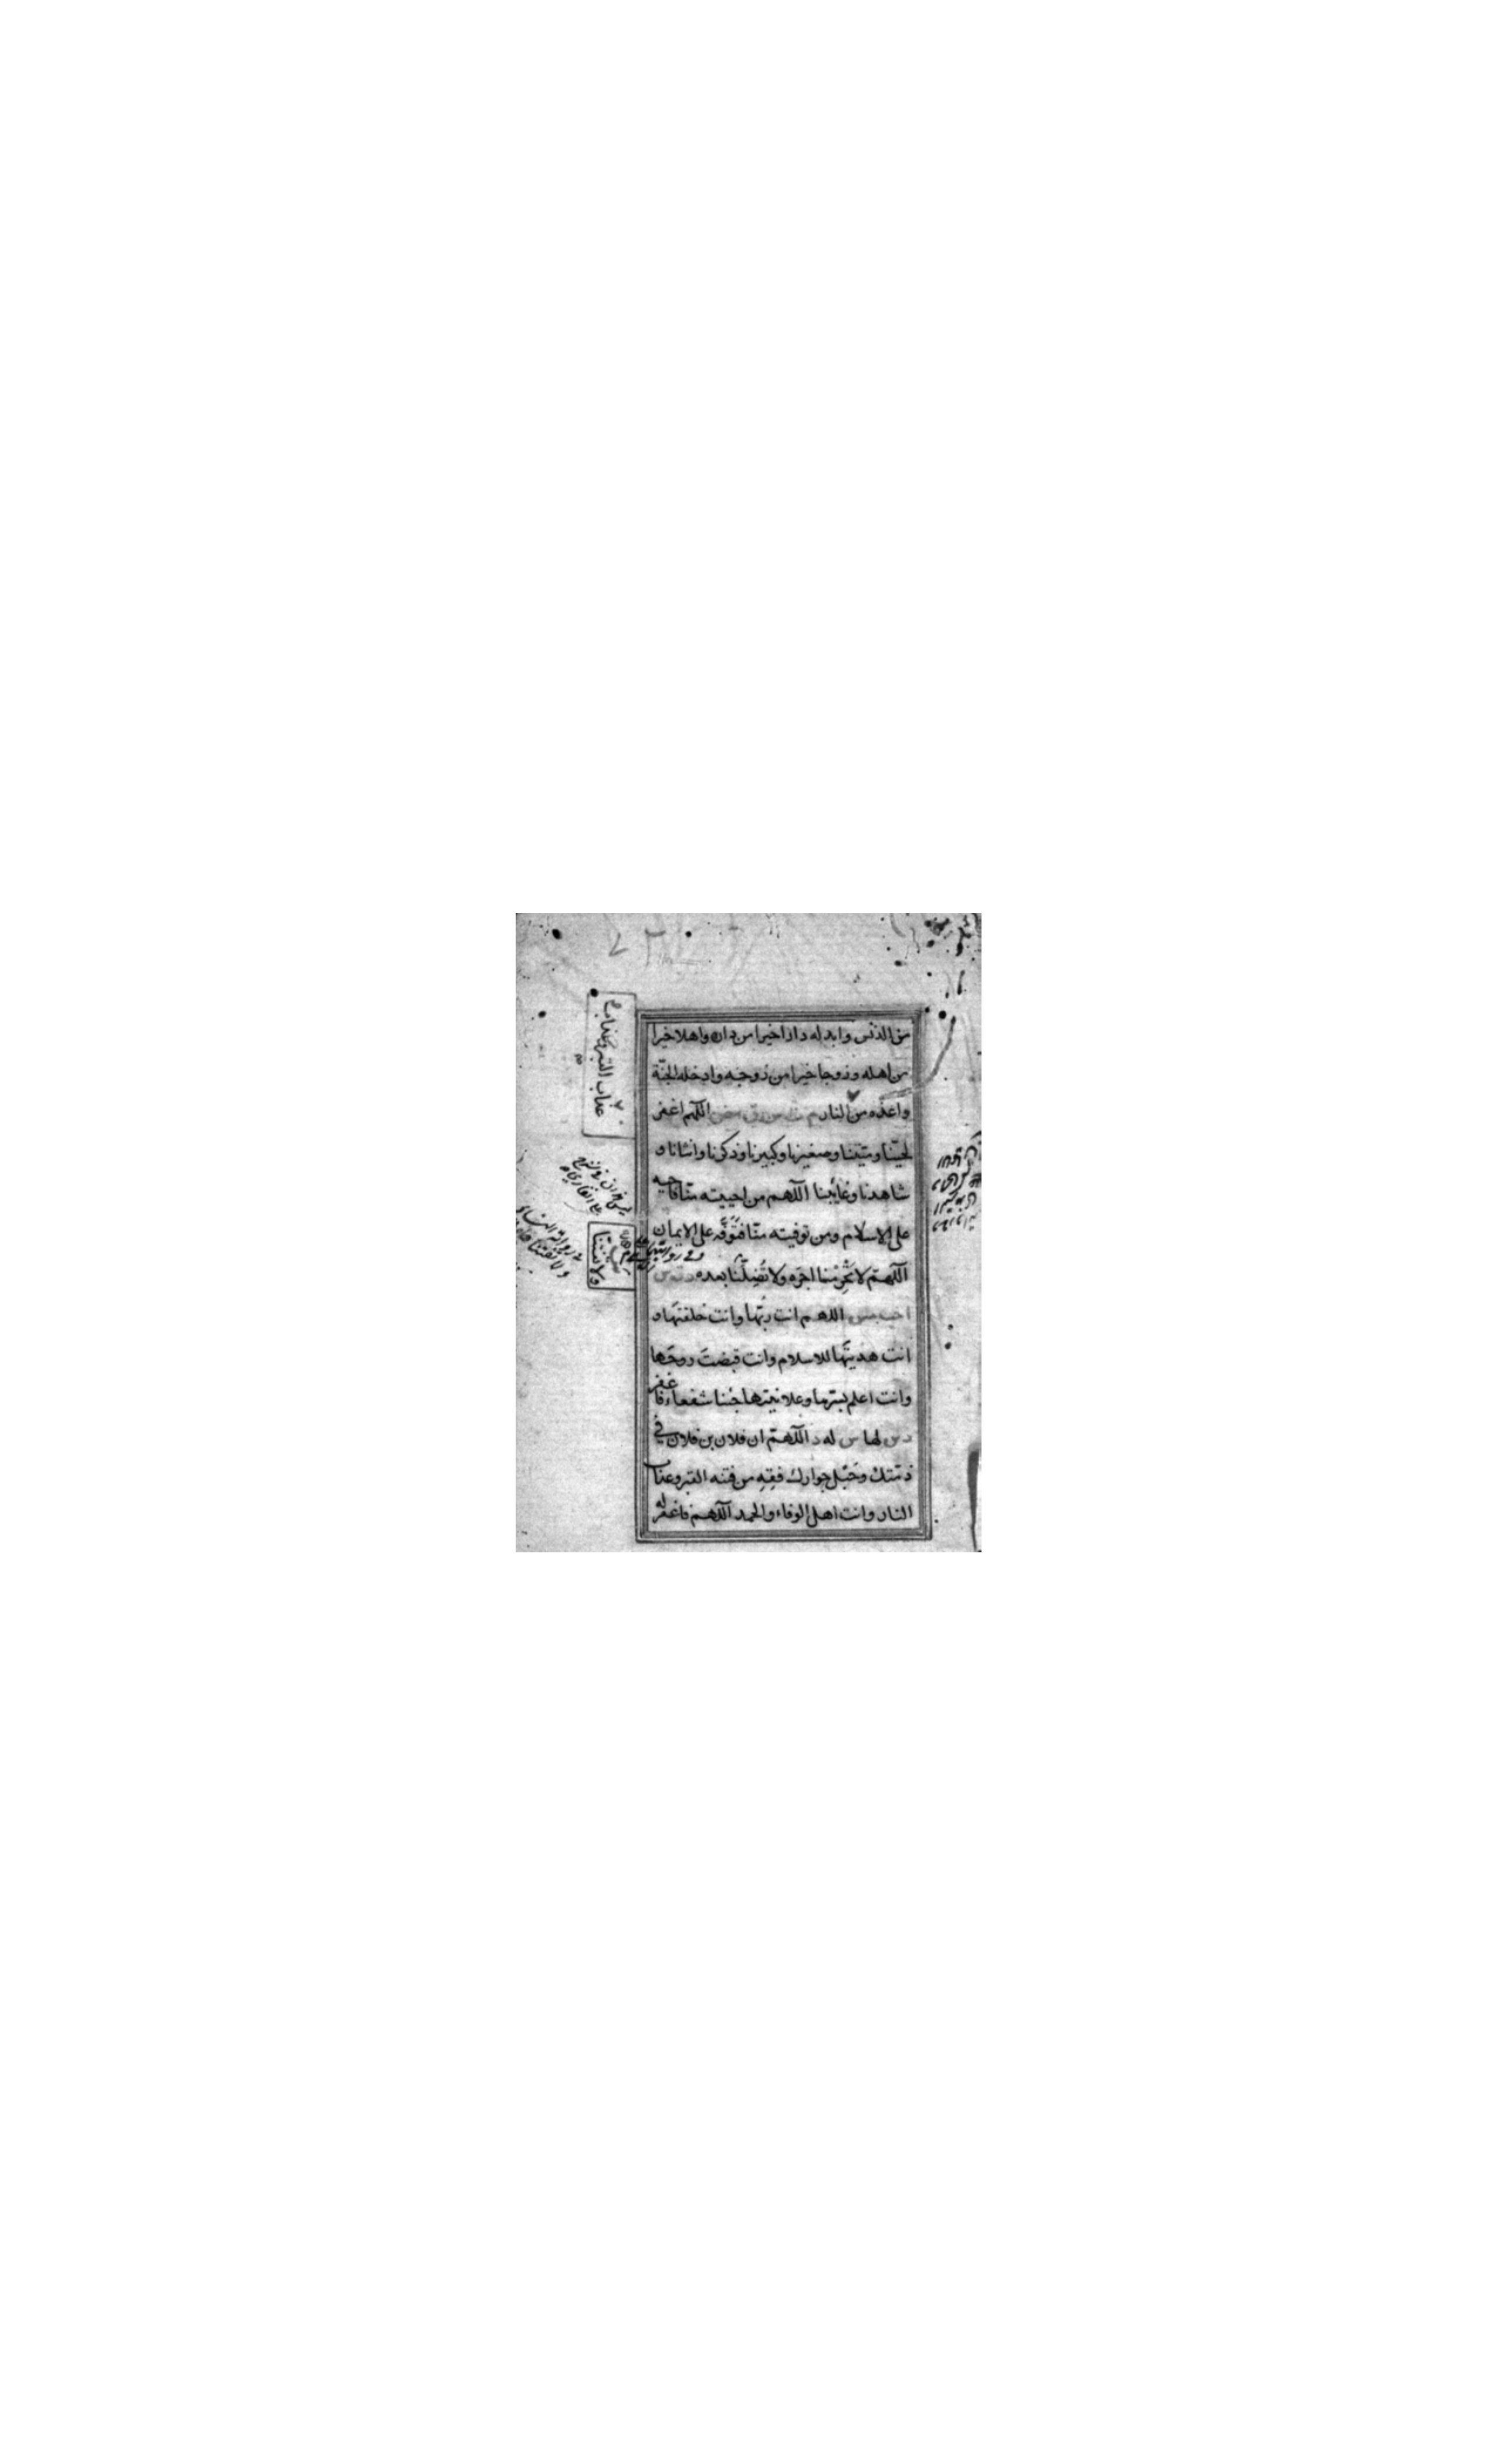 من الدنس وابدله دارا خيرا من داره واهلا خيرا
من اهله وزوجا خيرا من زوجه وادخله الجنة
واعذه من النار م ت س ق مص اللهم اغفر
لحيّنا وميّتنا وصغيرنا وكبيرنا وذكرنا وانثانا و
شاهدنا وغائبنا اللهم من احييته منّا فاحيه
على الاسلام ومن توفيته منّا فتوفّه على الايمان
اللهمّ لا تحْرِمْنا اجره ولا تُضِلّنا بعده د ت س
ا حب مس اللهم انت ربّها وانت خلقتها و
انت هديتَها للاسلام وانت قبضتَ روحَها
وانت اعلم بسرها وعلانيتها جئنا شفعاء فاغفر
د س لها س له د اللهمّ ان فلان بن فلان في
ذمّتك وحَبْل جوارك فَقِهِ من فتنة القبر وعذاب
النار وانت اهل الوفاء والحمد اللهم فاغفر له
عذاب القبر وعذاب
ولا تفتنّا